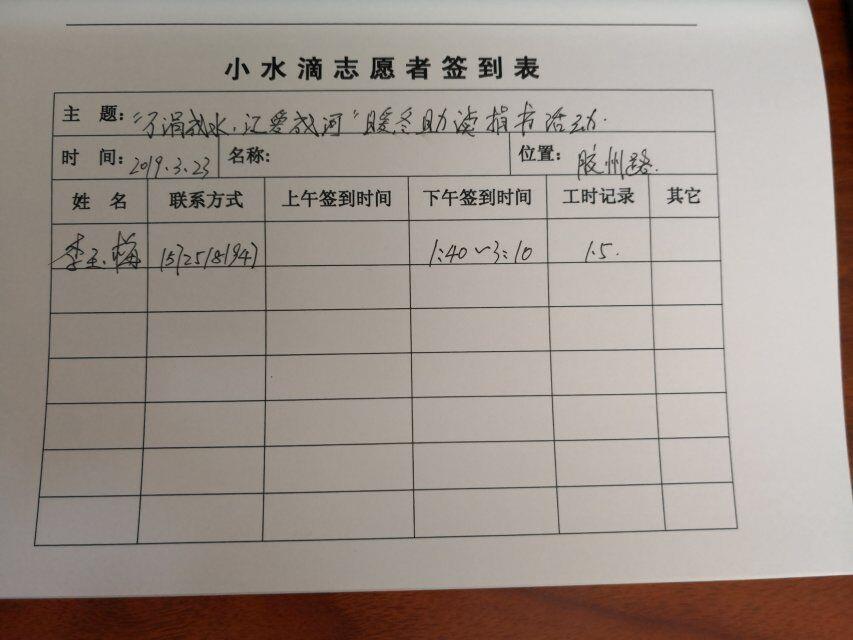 小水滴志愿者签到表
主 题:“万涓成水,汇爱成河”暖冬助读捐书活动.
时 间:2019.3.23 名称: 位置:胶州路.
姓 名 联系方式 上午签到时间 下午签到时间 工时记录 其它
李玉梅 1:40~3:10 1.5.